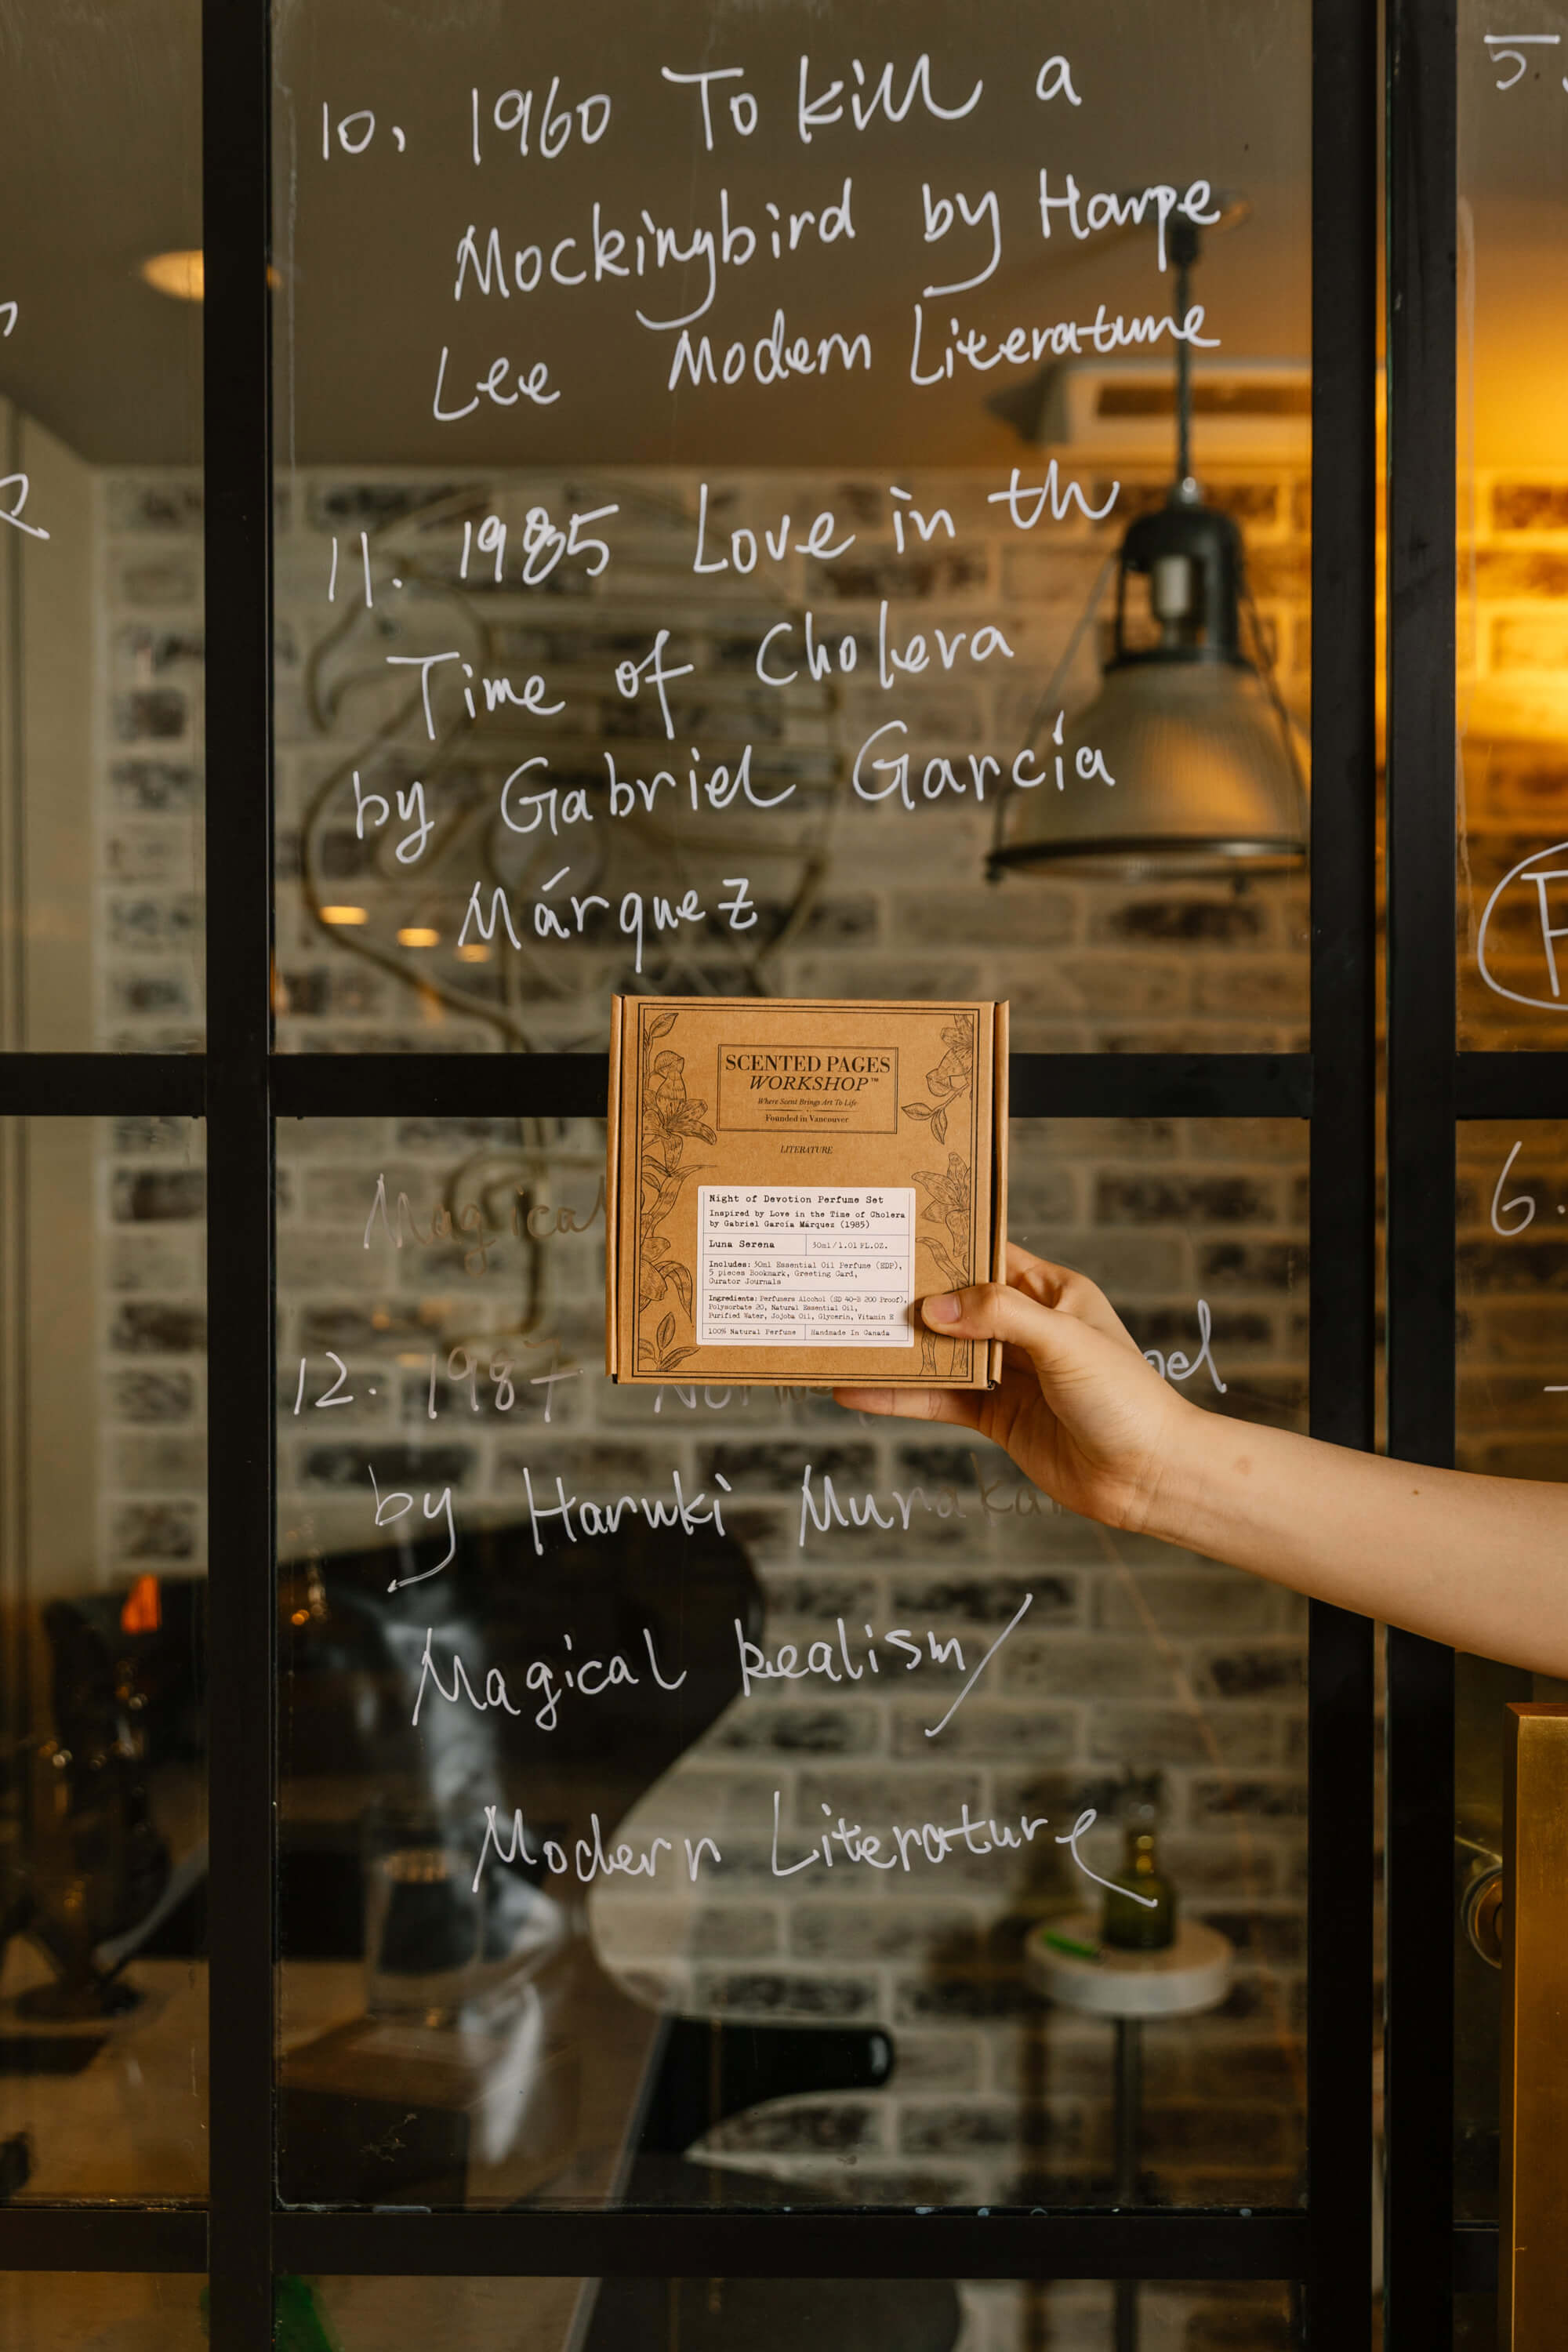 10. 1960 To kill a
Mockingbird by Harpe
Lee Modern Literature
11. 1985 Love in th
Time of Cholera
by Gabriel García
Márquez
SCENTED PAGES
WORKSHOP™
Where Scent Brings Art To Life
Founded in Vancouver
LITERATURE
Night of Devotion Perfume Set
Inspired by Love in the Time of Cholera
by Gabriel García Márquez (1985)
Luna Serena 30ml/1.01 FL.OZ.
Includes: 30ml Essential Oil Perfume (EDP),
5 pieces Bookmark, Greeting Card,
Curator Journals
Ingredients: Perfumers Alcohol (SD 40-B 200 Proof),
Polysorbate 20, Natural Essential Oil,
Purified Water, Jojoba Oil, Glycerin, Vitamin E
100% Natural Perfume Handmade In Canada
Magical
12. 1987
by Haruki
Magical Realism/
Modern Literature
5.
6.